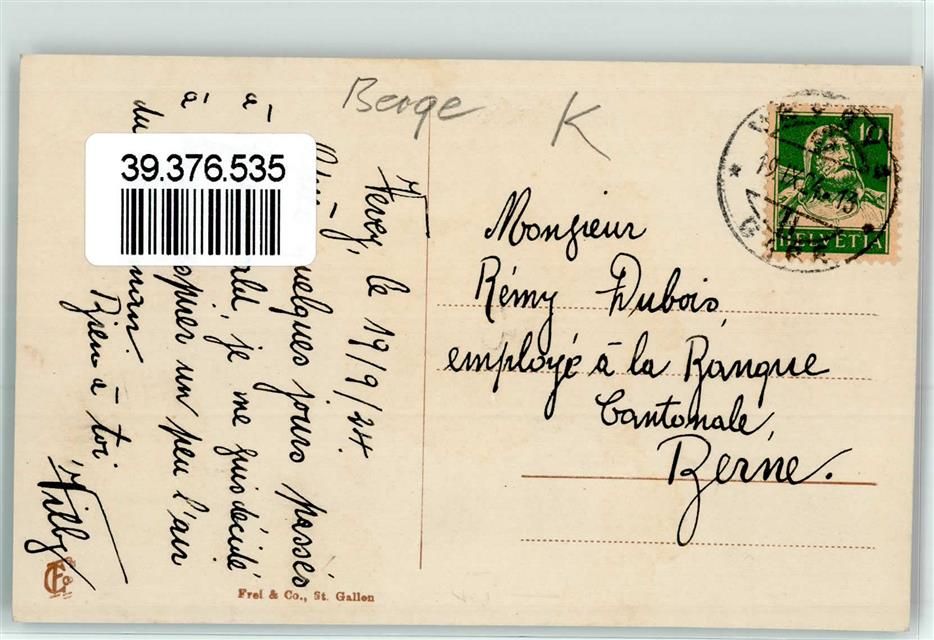 Berge
K
39.376.535
Vevey, le 19/9/24.
quelques jours passés
je me suis décidé
un peu l'air
du
Bien à toi.
Willy
Monsieur
Rémy Dubois,
employé à la Banque
Cantonale,
Berne.
10
HELVETIA
Frei & Co., St. Gallen